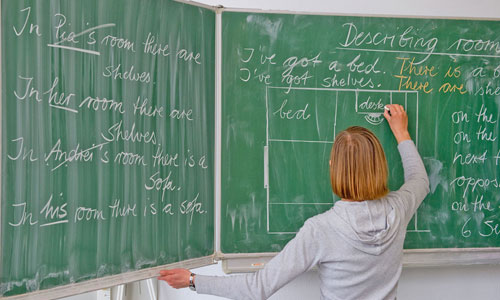 In Pia's room there are
shelves
In her room there are
shelves.
In Andrei's room there is a
sofa.
In his room there is a sofa.
Describing room
I've got a bed. There is a b
I've got shelves. There are she
bed
desk
on the
on the
next
oppos
on the